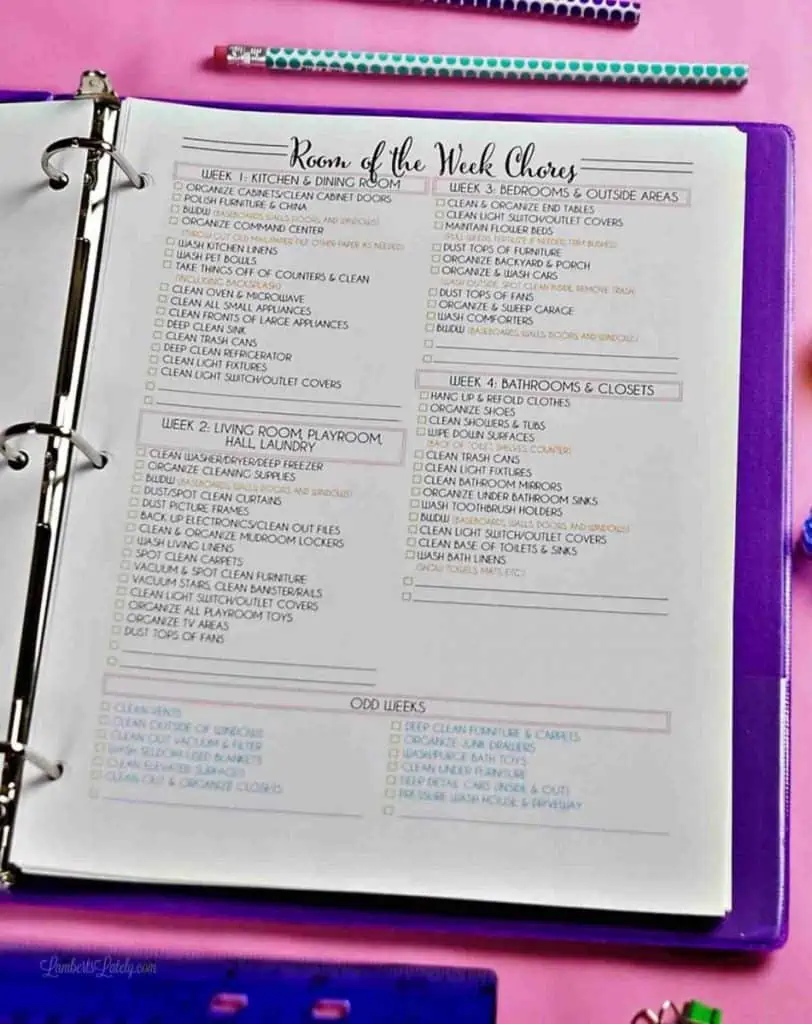 Room of the Week Chores
WEEK 1: KITCHEN & DINING ROOM
ORGANIZE CABINETS/CLEAN CABINET DOORS
POLISH FURNITURE & CHINA
BWDW (BASEBOARDS, WALLS, DOORS, AND WINDOWS)
ORGANIZE COMMAND CENTER
(THROW OUT OLD MAIL/PAPER, FILE OTHER PAPER AS NEEDED)
WASH KITCHEN LINENS
WASH PET BOWLS
TAKE THINGS OFF OF COUNTERS & CLEAN
(INCLUDING BACKSPLASH)
CLEAN OVEN & MICROWAVE
CLEAN ALL SMALL APPLIANCES
CLEAN FRONTS OF LARGE APPLIANCES
DEEP CLEAN SINK
CLEAN TRASH CANS
DEEP CLEAN REFRIGERATOR
CLEAN LIGHT FIXTURES
CLEAN LIGHT SWITCH/OUTLET COVERS
WEEK 2: LIVING ROOM, PLAYROOM,
HALL, LAUNDRY
CLEAN WASHER/DRYER/DEEP FREEZER
ORGANIZE CLEANING SUPPLIES
BWDW (BASEBOARDS, WALLS, DOORS, AND WINDOWS)
DUST/SPOT CLEAN CURTAINS
DUST PICTURE FRAMES
BACK UP ELECTRONICS/CLEAN OUT FILES
CLEAN & ORGANIZE MUDROOM LOCKERS
WASH LIVING LINENS
SPOT CLEAN CARPETS
VACUUM & SPOT CLEAN FURNITURE
VACUUM STAIRS, CLEAN BANISTER/RAILS
CLEAN LIGHT SWITCH/OUTLET COVERS
ORGANIZE ALL PLAYROOM TOYS
ORGANIZE TV AREAS
DUST TOPS OF FANS
WEEK 3: BEDROOMS & OUTSIDE AREAS
CLEAN & ORGANIZE END TABLES
CLEAN LIGHT SWITCH/OUTLET COVERS
MAINTAIN FLOWER BEDS
(PULL WEEDS, FERTILIZE IF NEEDED, TRIM BUSHES)
DUST TOPS OF FURNITURE
ORGANIZE BACKYARD & PORCH
ORGANIZE & WASH CARS
(WASH OUTSIDE, SPOT CLEAN INSIDE, REMOVE TRASH)
DUST TOPS OF FANS
ORGANIZE & SWEEP GARAGE
WASH COMFORTERS
BWDW (BASEBOARDS, WALLS, DOORS, AND WINDOWS)
WEEK 4: BATHROOMS & CLOSETS
HANG UP & REFOLD CLOTHES
ORGANIZE SHOES
CLEAN SHOWERS & TUBS
WIPE DOWN SURFACES
(BACK OF TOILET, SHELVES, COUNTER)
CLEAN TRASH CANS
CLEAN LIGHT FIXTURES
CLEAN BATHROOM MIRRORS
ORGANIZE UNDER BATHROOM SINKS
WASH TOOTHBRUSH HOLDERS
BWDW (BASEBOARDS, WALLS, DOORS, AND WINDOWS)
CLEAN LIGHT SWITCH/OUTLET COVERS
CLEAN BASE OF TOILETS & SINKS
WASH BATH LINENS
TOWELS, MATS, ETC.)
ODD WEEKS
CLEAN VENTS
CLEAN OUTSIDE OF WINDOWS
CLEAN OUT VACUUM & FILTER
WASH SELDOM USED BLANKETS
CLEAN ELEVATED SURFACES
CLEAN OUT & ORGANIZE CLOSETS
DEEP CLEAN FURNITURE & CARPETS
ORGANIZE JUNK DRAWERS
WASH/PURGE BATH TOYS
CLEAN UNDER FURNITURE
DEEP DETAIL CARS (INSIDE & OUT)
PRESSURE WASH HOUSE & DRIVEWAY
LambertsLately.com